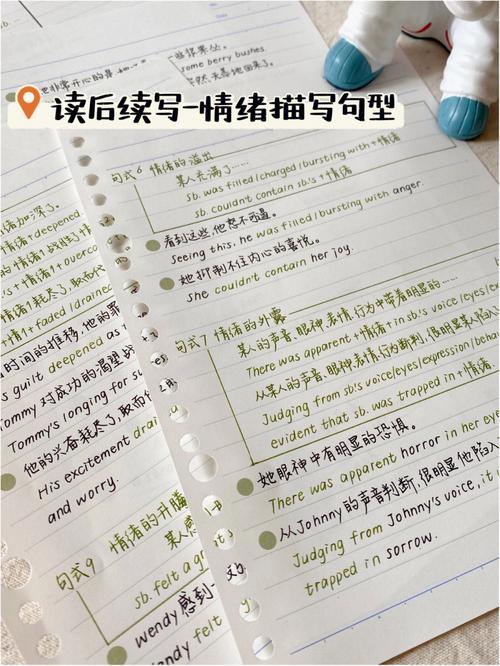 读后续写-情绪描写句型
些浆果丛。
some berry bushes.
句式6 情绪的溢出
某人充满了……
sb. was filled/charged/bursting with+情绪
sb. couldn't contain sb.'s+情绪
看到这些,他怒不可遏。
Seeing this, he was filled/bursting with anger.
她抑制不住内心的喜悦。
She couldn't contain her joy.
句式7 情绪的外露
某人的声音、眼神、表情、行为中带着明显的……
There was apparent+情绪+in sb.'s voice/eyes/
从某人的声音、眼神、表情、行为判断,很明显某人
Judging from sb's voice/eyes/expression/beha
evident that sb. was trapped in+情绪.
她眼神中有明显的恐惧。
There was apparent horror in her eye
从Johnny的声音判断,很明显他陷入
Judging from Johnny's voice, it
trapped in sorrow.
情绪加深了。
情绪+deepened
s+情绪+overco
情绪耗尽了,取而代
+1+faded/drained
时间的推移,他的罪
s guilt deepened as
ommy对成功的渴望战
Tommy's longing for su
他的兴奋耗尽了,取而
His excitement drain
and worry.
句式9 情绪的开
某人感
sb. felt a
wendy感到一
wendy felt